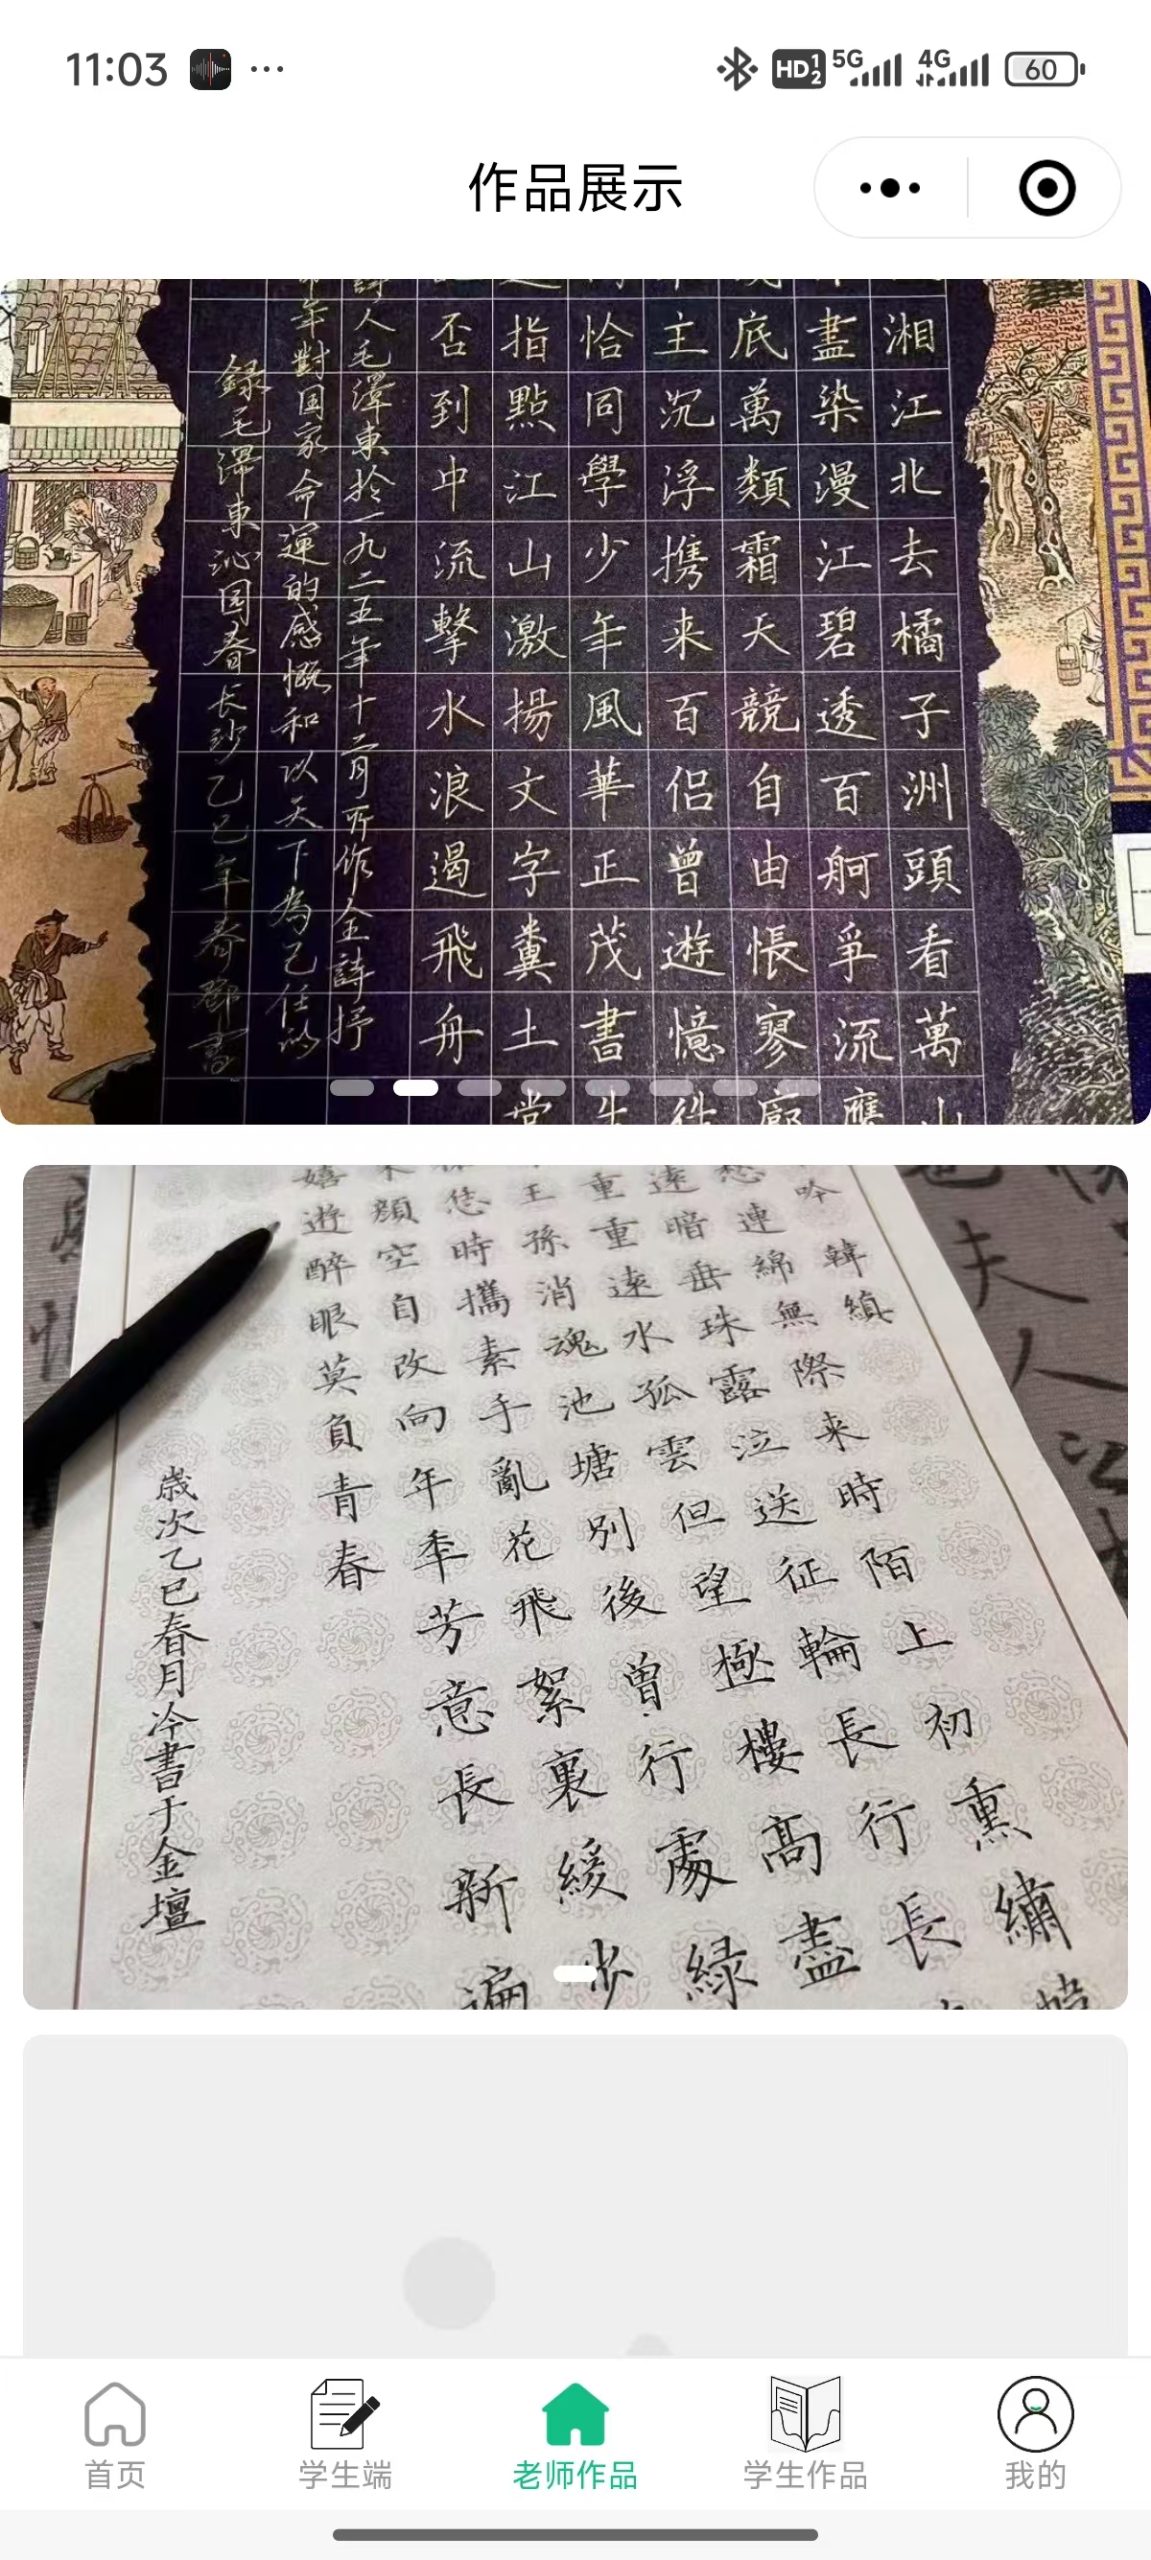 11:03
HD 1 2 5G 4G 60
作品展示
湘江北去橘子洲頭看萬山
盡染漫江碧透百舸爭流鷹
底萬類霜天競自由悵寥廓
主沉浮携来百侣曾遊憶往
恰同學少年風華正茂書生
指點江山激揚文字糞土當
否到中流擊水浪遏飛舟
詩人毛澤東於一九二五年十二月所作全詩抒
年對国家命運的感慨和以天下為己任的
錄毛澤東沁園春長沙乙巳年春鄧書
韓縝
吟
連綿無際来時陌上初熏繡
愁
遠暗垂珠露泣送征輪長行長
重重遠水孤雲但望極樓高盡
王孫消魂池塘別後曾行處緑
恁時攜素手亂花飛絮裏緩步
顏空自改向年年芳意長新遍
嬉遊醉眼莫負青春
歲次乙巳春月冷書于金壇
首页
学生端
老师作品
学生作品
我的